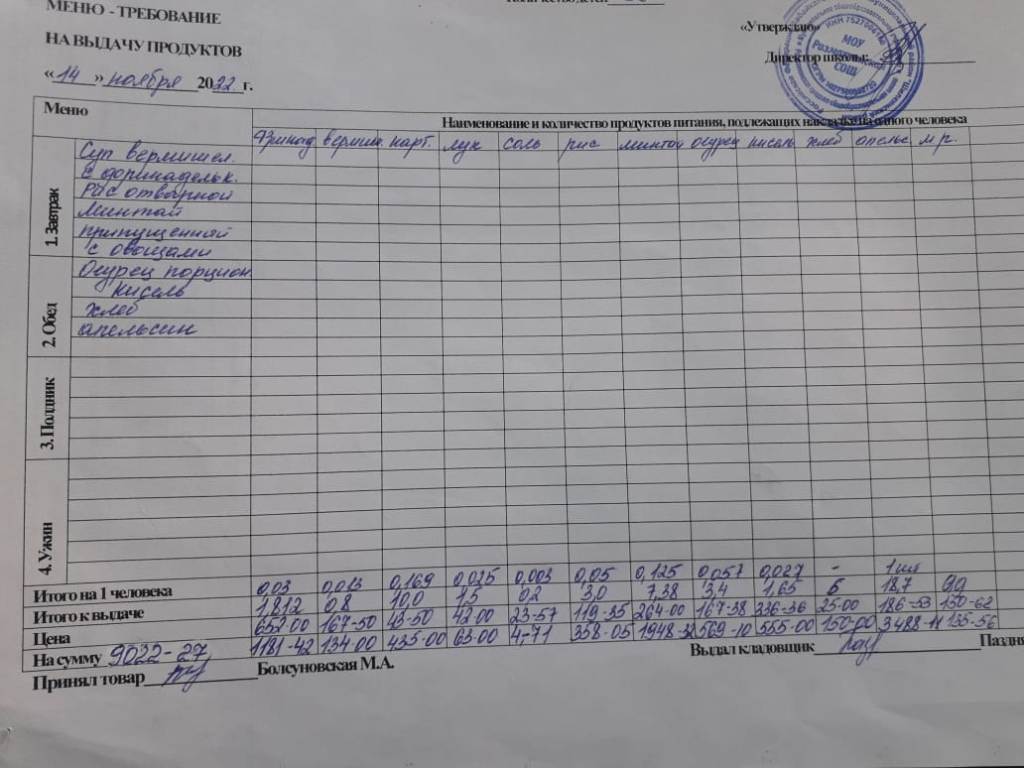 МЕНЮ - ТРЕБОВАНИЕ
«Утверждаю»
НА ВЫДАЧУ ПРОДУКТОВ
Директор школы:
«14» ноября 2022 г.
МОУ
СОШ
Меню
Наименование и количество продуктов питания, подлежащих накладке на одного человека
фрикад вермиш. карт. лук соль рис минтай огурец кисель хлеб апельс м.р.
1. Завтрак
Суп вермишел.
с фрикадельк.
Рис отварной
Минтай
припущенный
с овощами
2. Обед
Огурец порцион
кисель
хлеб
апельсин
3. Полдник
4. Ужин
Итого на 1 человека 0,03 0,013 0,169 0,025 0,003 0,05 0,125 0,057 0,027 - 1шт
Итого к выдаче 1,812 0,8 10,0 1,5 0,2 3,0 7,38 3,4 1,65 6 18,7 0,9
Цена 652-00 167-50 43-50 42-00 23-57 119-35 264-00 167-38 336-36 25-00 186-53 150-62
На сумму 9022-27 1181-42 134-00 435-00 63-00 4-71 358-05 1948-32 569-10 555-00 150-00 3488-11 135-56
Принял товар Болсуновская М.А.
Выдал кладовщик